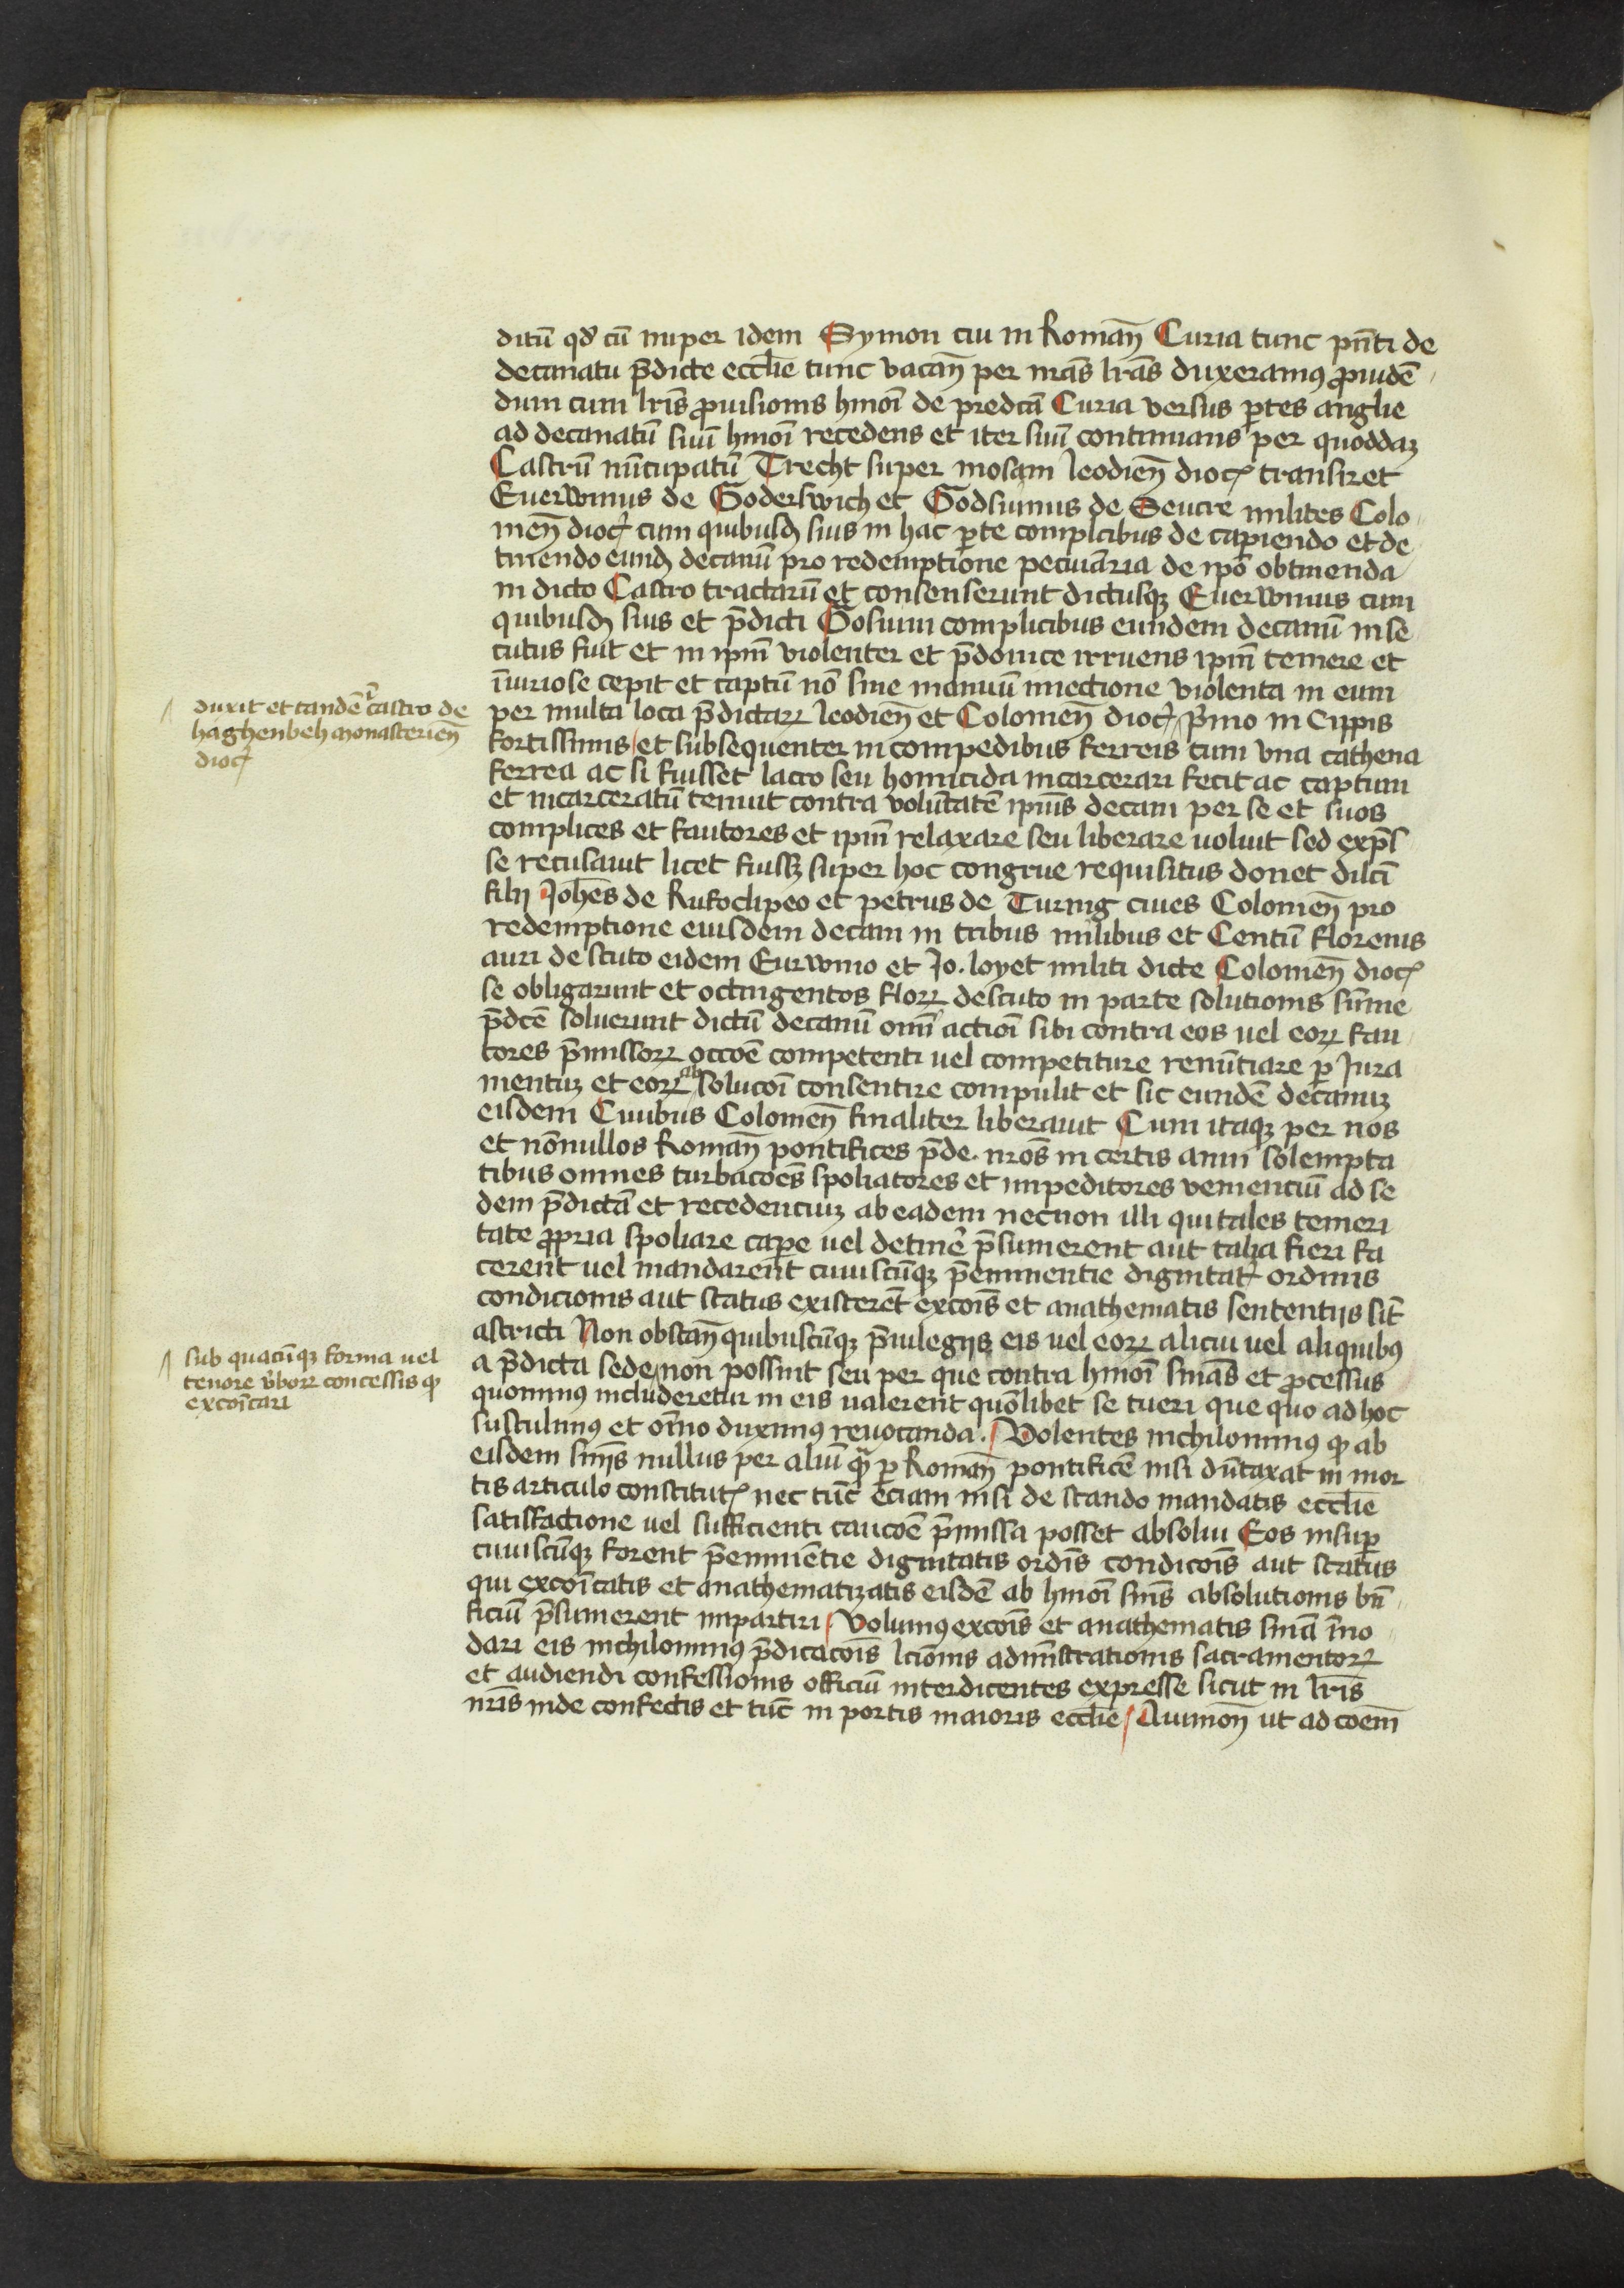 ditū qđ cū nuper idem Symon cui in Romañ Curia tunc pn̄ti de
decanatu p̄dicte ecclie tunc vacan̄ per nr̄as lr̄as duxeramꝰ ꝓuidē
dum cum lr̄is ꝓuisionis hmōi de predcā Curia versus ꝑtes anglie
ad decanatū suū hmōi recedens et iter suū continuans per quoddaꝫ
Castrū nūcupatū Trecht super mosam leodien̄ dioc̄ transiret
Euerwinus de Goderswich et Godsuinus de Seucre milites Colo
nien̄ dioc̄ cum quibusdꝫ suis in hac ꝑte complcibus de capiendo et de
tinendo eundꝫ decanū pro redemptione pecuniaria de ipō obtinenda
in dicto Castro tractarū et consenserunt dictusqꝫ Euerwinus cum
quibusdꝫ suis et p̄dicti Gosuini complicibus eundem decanū inse
cutus fuit et in ipm̄ violenter et p̄donice irruens ipm̄ temere et
iniuriose cepit et captū nō sine manuū iniectione violenta in eum
per multa loca p̄dictarꝝ leodien̄ et Colonien̄ dioc̄ / p̄mo in Cippis
fortissimis et subsequenter in compedibus ferreis cum vna cathena
ferrea ac si fuisset latro seu homicida incarcerari fecit ac captum
et incarceratū tenuit contra volūtatē ipiūs decani per se et suos
complices et fautores et ipm̄ relaxare seu liberare noluit sed exp̄s
se recusauit licet fuissꝫ super hoc congrue requisitus donec dilcī
filij Joh̄es de Rufoclipeo et petrus de Turnig ciues Colonien̄ pro
redemptione eiusdem decani in tribus milibus et Centū florenis
auri de scuto eidem Eurwino et Jo. loyet militi dicte Colonien̄ dioc̄
se obligarunt et octingentos florꝝ de scuto in parte solutionis sūme
p̄dcē soluerunt dictū decanū omī actioī sibi contra eos uel eorꝝ fau
tores p̄missorꝝ occōe competenti uel competiture renūtiare ꝑ Jura
mentuꝫ et eorꝝ absolucōi consentire compulit et sic eundē decanuꝫ
eisdem Ciuibus Colonien̄ finaliter liberauit Cum itaqꝫ per nos
et nōnullos Roman̄ pontifices p̄de. nr̄os in certis anni solempta
tibus omnes turbacōes spoliatores et impeditores venienciū ad se
dem p̄dictā et recedenciuꝫ ab eadem necnon illi qui tales temeri
tate ꝓpria spoliare cape uel detinē p̄sumerent aut talia fieri fa
cerent uel mandarent cuiuscūqꝫ p̄eminentie dignitat̄ ordinis
condicionis aut status existerēt excoīs et anathematis sententijs sīt
astricti Non obstan̄ quibuscūqꝫ p̄iulegijs eis uel eorꝝ alicui uel aliquibꝰ
a p̄dicta sede / non possint seu per que contra hmōi snīas et ꝓcessus
quominꝰ includeretur in eis ualerent quōlibet se tueri que quo ad hoc
sustulimꝰ et oīno duximꝰ reuocanda. Volentes nichilominꝰ ꝙ ab
eisdem snijs nullus per aliū qͣ ꝑ Roman̄ pontificē nisi dūtaxat in mor
tis articulo constitut̄ nec tūc eciam nisi de stando mandatis ecclie
satisfactione uel sufficienti caucōe p̄missa posset absolui Eos insuꝑ
cuiuscūqꝫ forent p̄emiēntie dignitatis ordīs condicōis aut status
qui excōicatis et anathematizatis eisdē ab hmōi snīs absolutionis bn̄
ficiū p̄sumerent impartiri / Volumꝰ excoīs et anathematis snīa īno
dari eis nichilominꝰ p̄dicacōis lciōnis admīstrationis sacramentorꝝ
et audiendi confessionis officiū interdicentes expresse sicut in lr̄is
nr̄is inde confectis et tūc in portis maioris ecclie / Auinion̄ ut ad coem̄

duxit et tandē ī castro de
haghenbeh monasterien̄
dioc̄

sub quacūqꝫ forma uel
tenore v̄borꝝ concessis ꝙ
excōicari